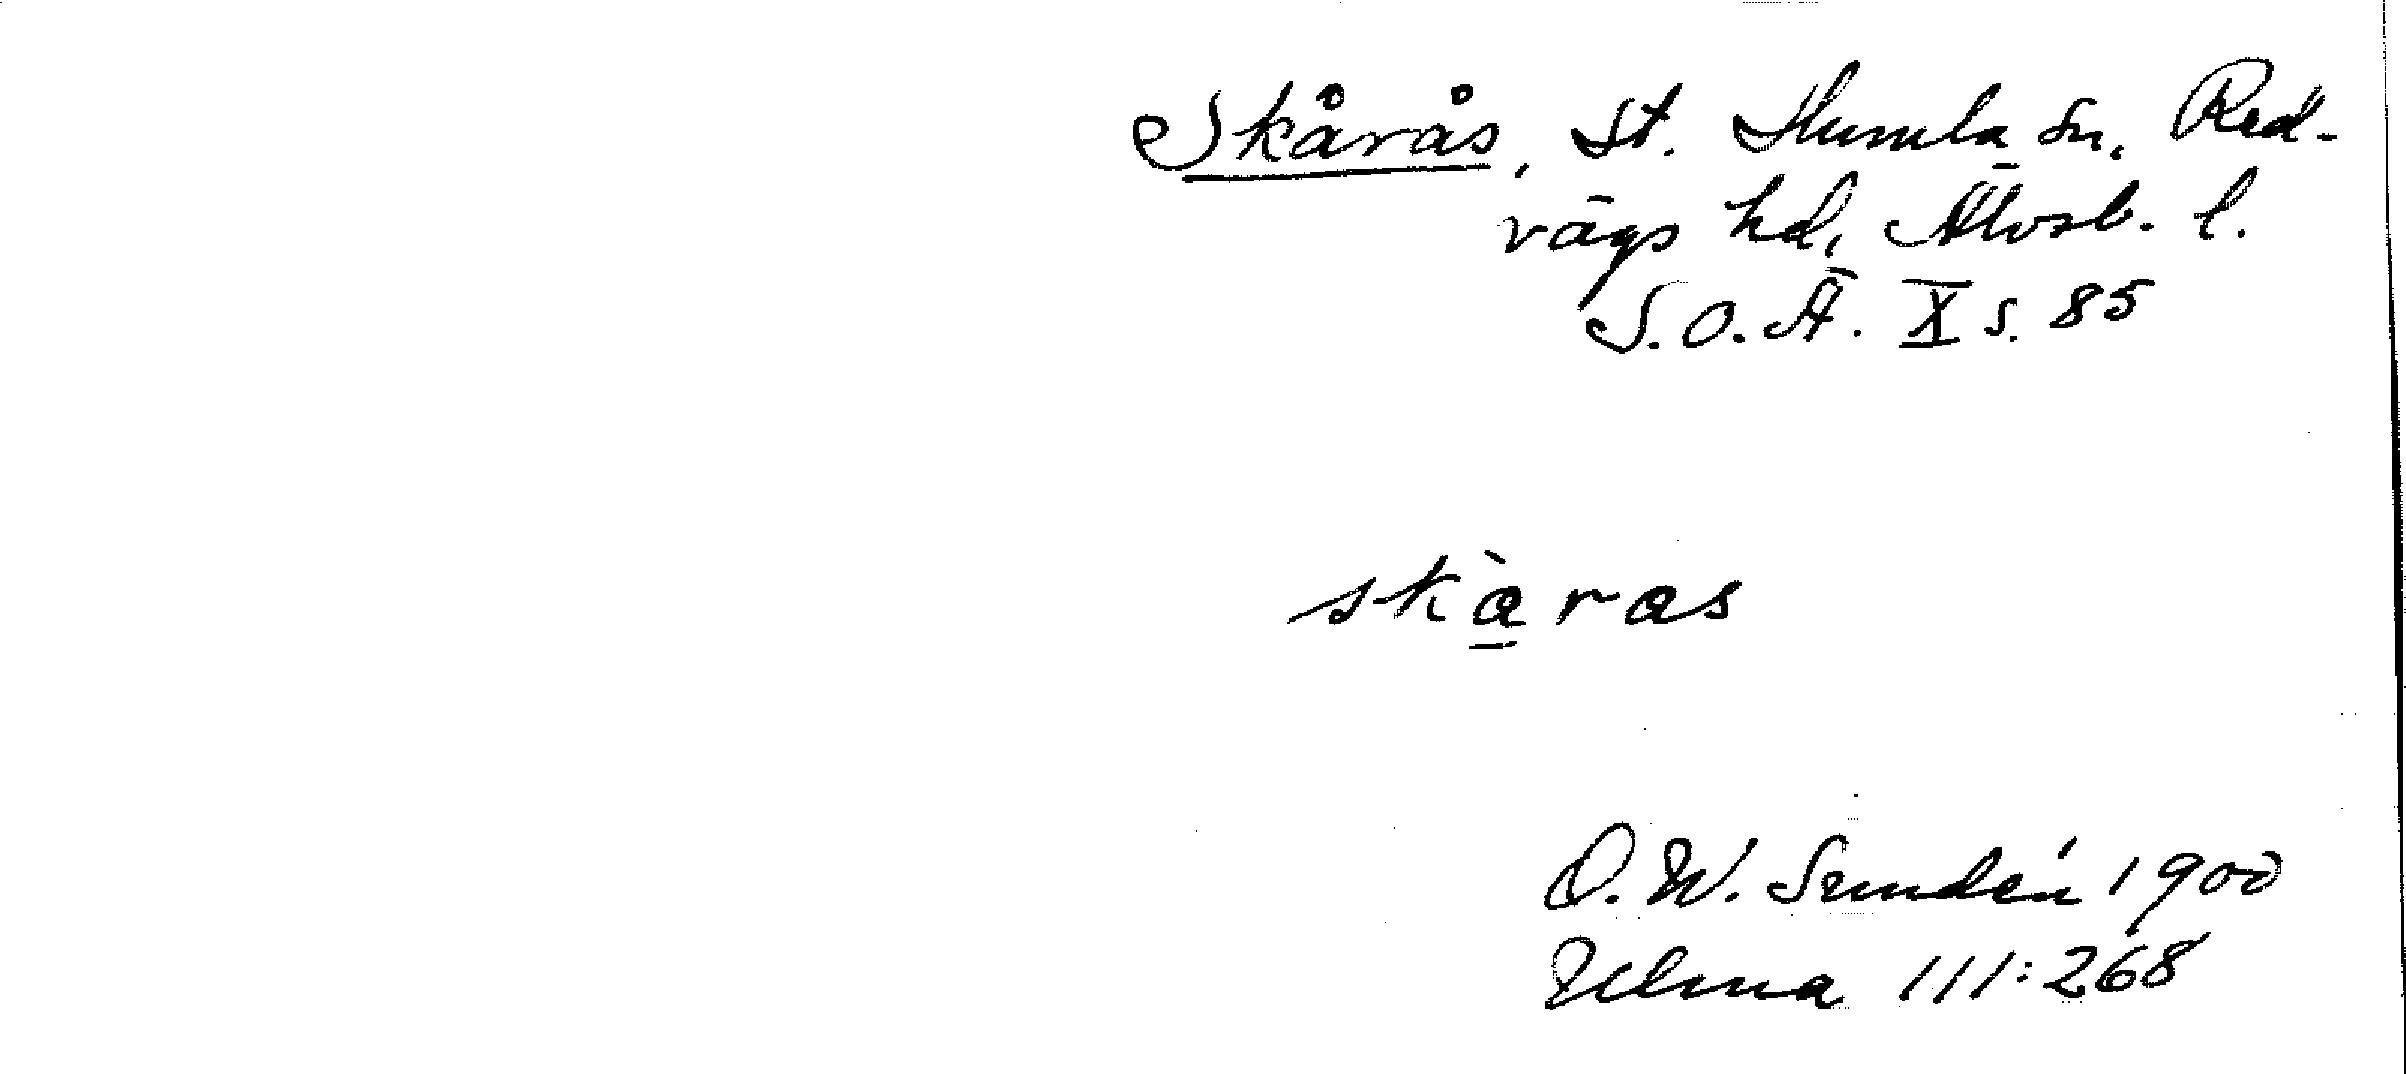 Skårås, St. Humla sn, Red-
vägs hd, Älvsb. l.
S.O.Ä. X s. 85
skàras
O. W. Sundén 1900
Ulma 111:268